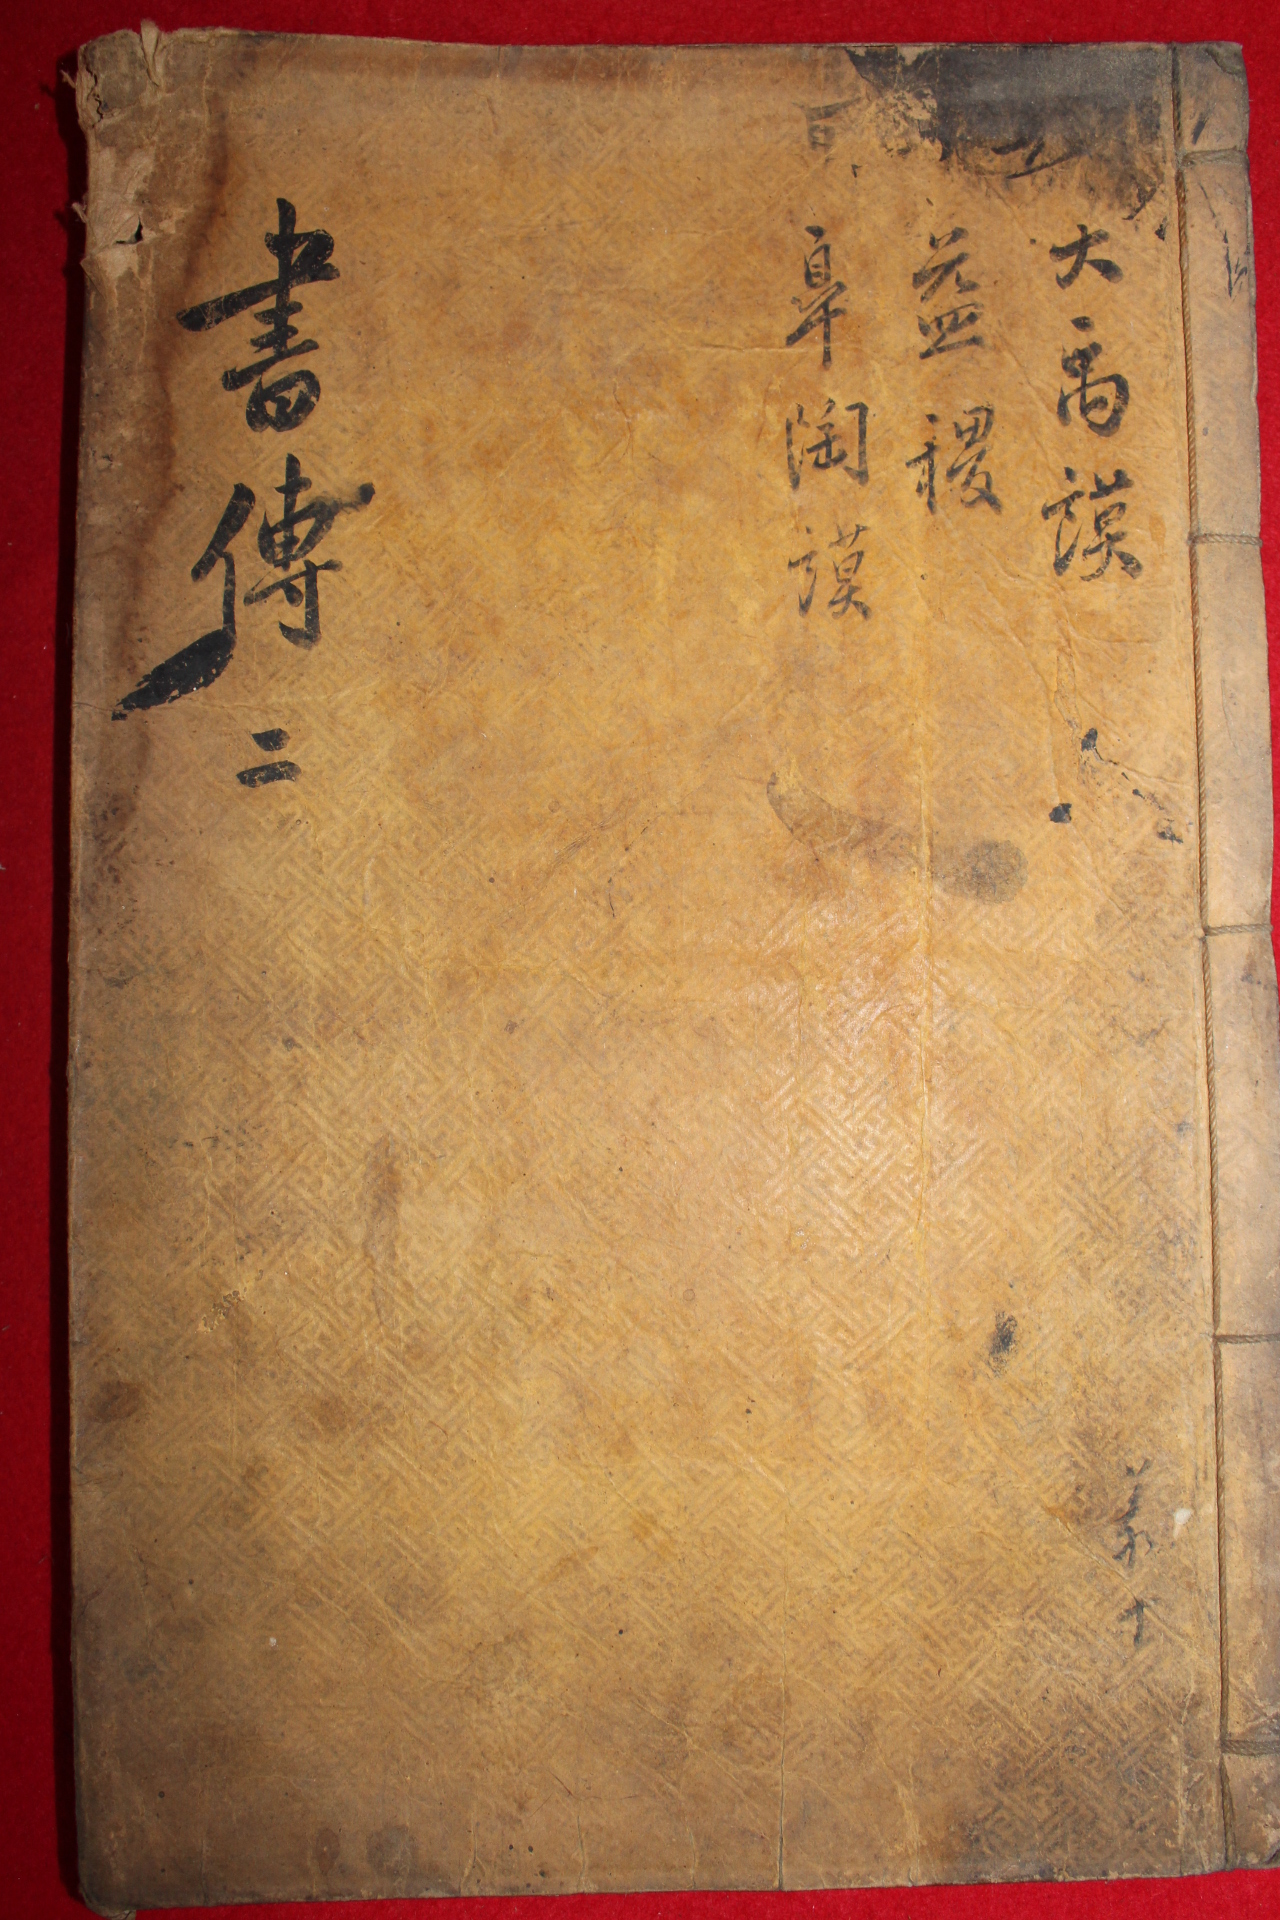 大禹謨
益稷
臯陶謨
書傳 二